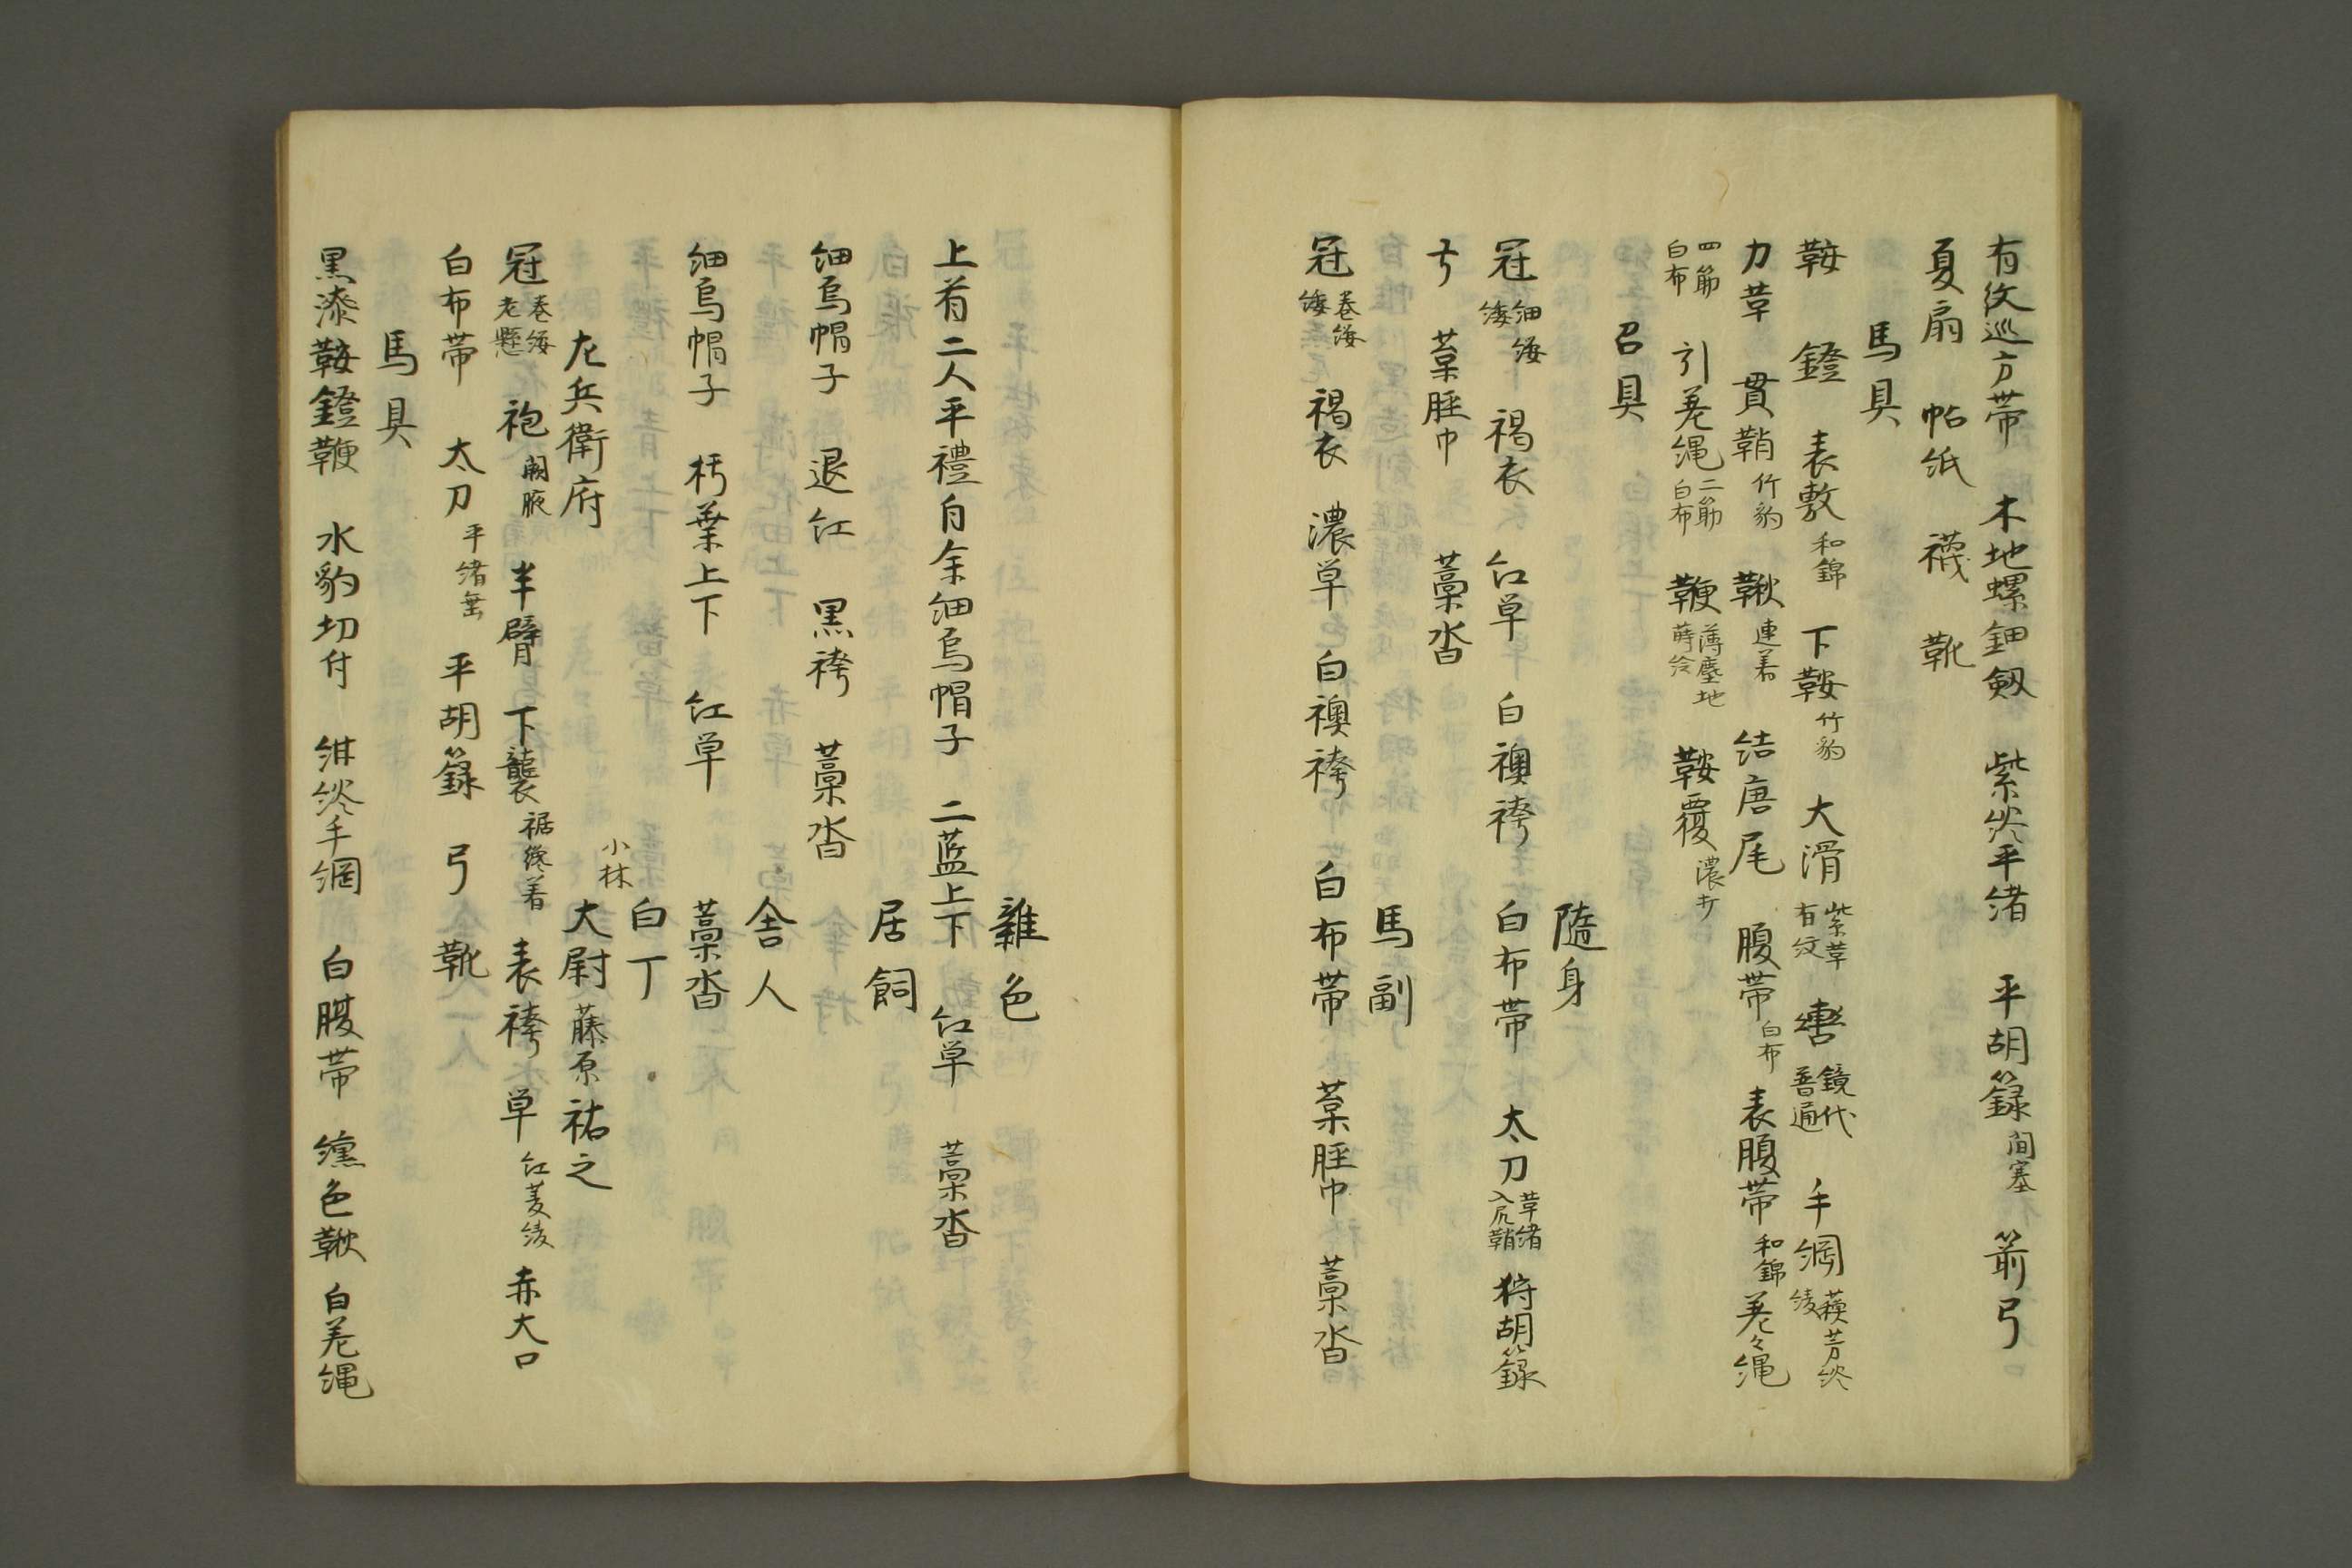 有紋巡方帯　木地螺鈿剱　紫淡平緒　平胡籙 間塞　箭弓
夏扇　帖紙　襪　靴
馬具
鞍　鐙　表敷 和錦　下鞍 竹豹　大滑 紫革 有紋　轡 鏡代 普通　手綱 蘓芳淡 綾
力革　貫鞘 竹豹　鞦 連着　結唐尾　腹帯 白布　表腹帯 和錦　差々縄
四筋 白布　引差縄 二筋 白布　鞭 薄塵地 蒔絵　鞍覆 濃打
召具
隨身
冠 細纓 緌　褐衣　紅単　白襖袴　白布帯　太刀 革緒 入尻鞘　狩胡籙
弓　葉脛巾　藁沓
馬副
冠 巻纓 緌　褐衣　濃単　白襖袴　白布帯　葉脛巾　藁沓
雜色
上首二人平禮自余細烏帽子　二藍上下　紅単　藁沓
居飼
細烏帽子　退紅　黒袴　藁沓
舎人
細烏帽子　朽葉上下　紅単　藁沓
白丁
左兵衛府　大尉 小林 藤原祐之
冠 巻纓 老懸　袍 闕腋　半臂　下襲 裾纔着　表袴　単 紅菱綾　赤大口
白布帯　太刀 平緒無　平胡籙　弓　靴
馬具
黒漆鞍鐙鞭　水豹切付　紺淡手綱　白腹帯　纁色鞦　白差縄